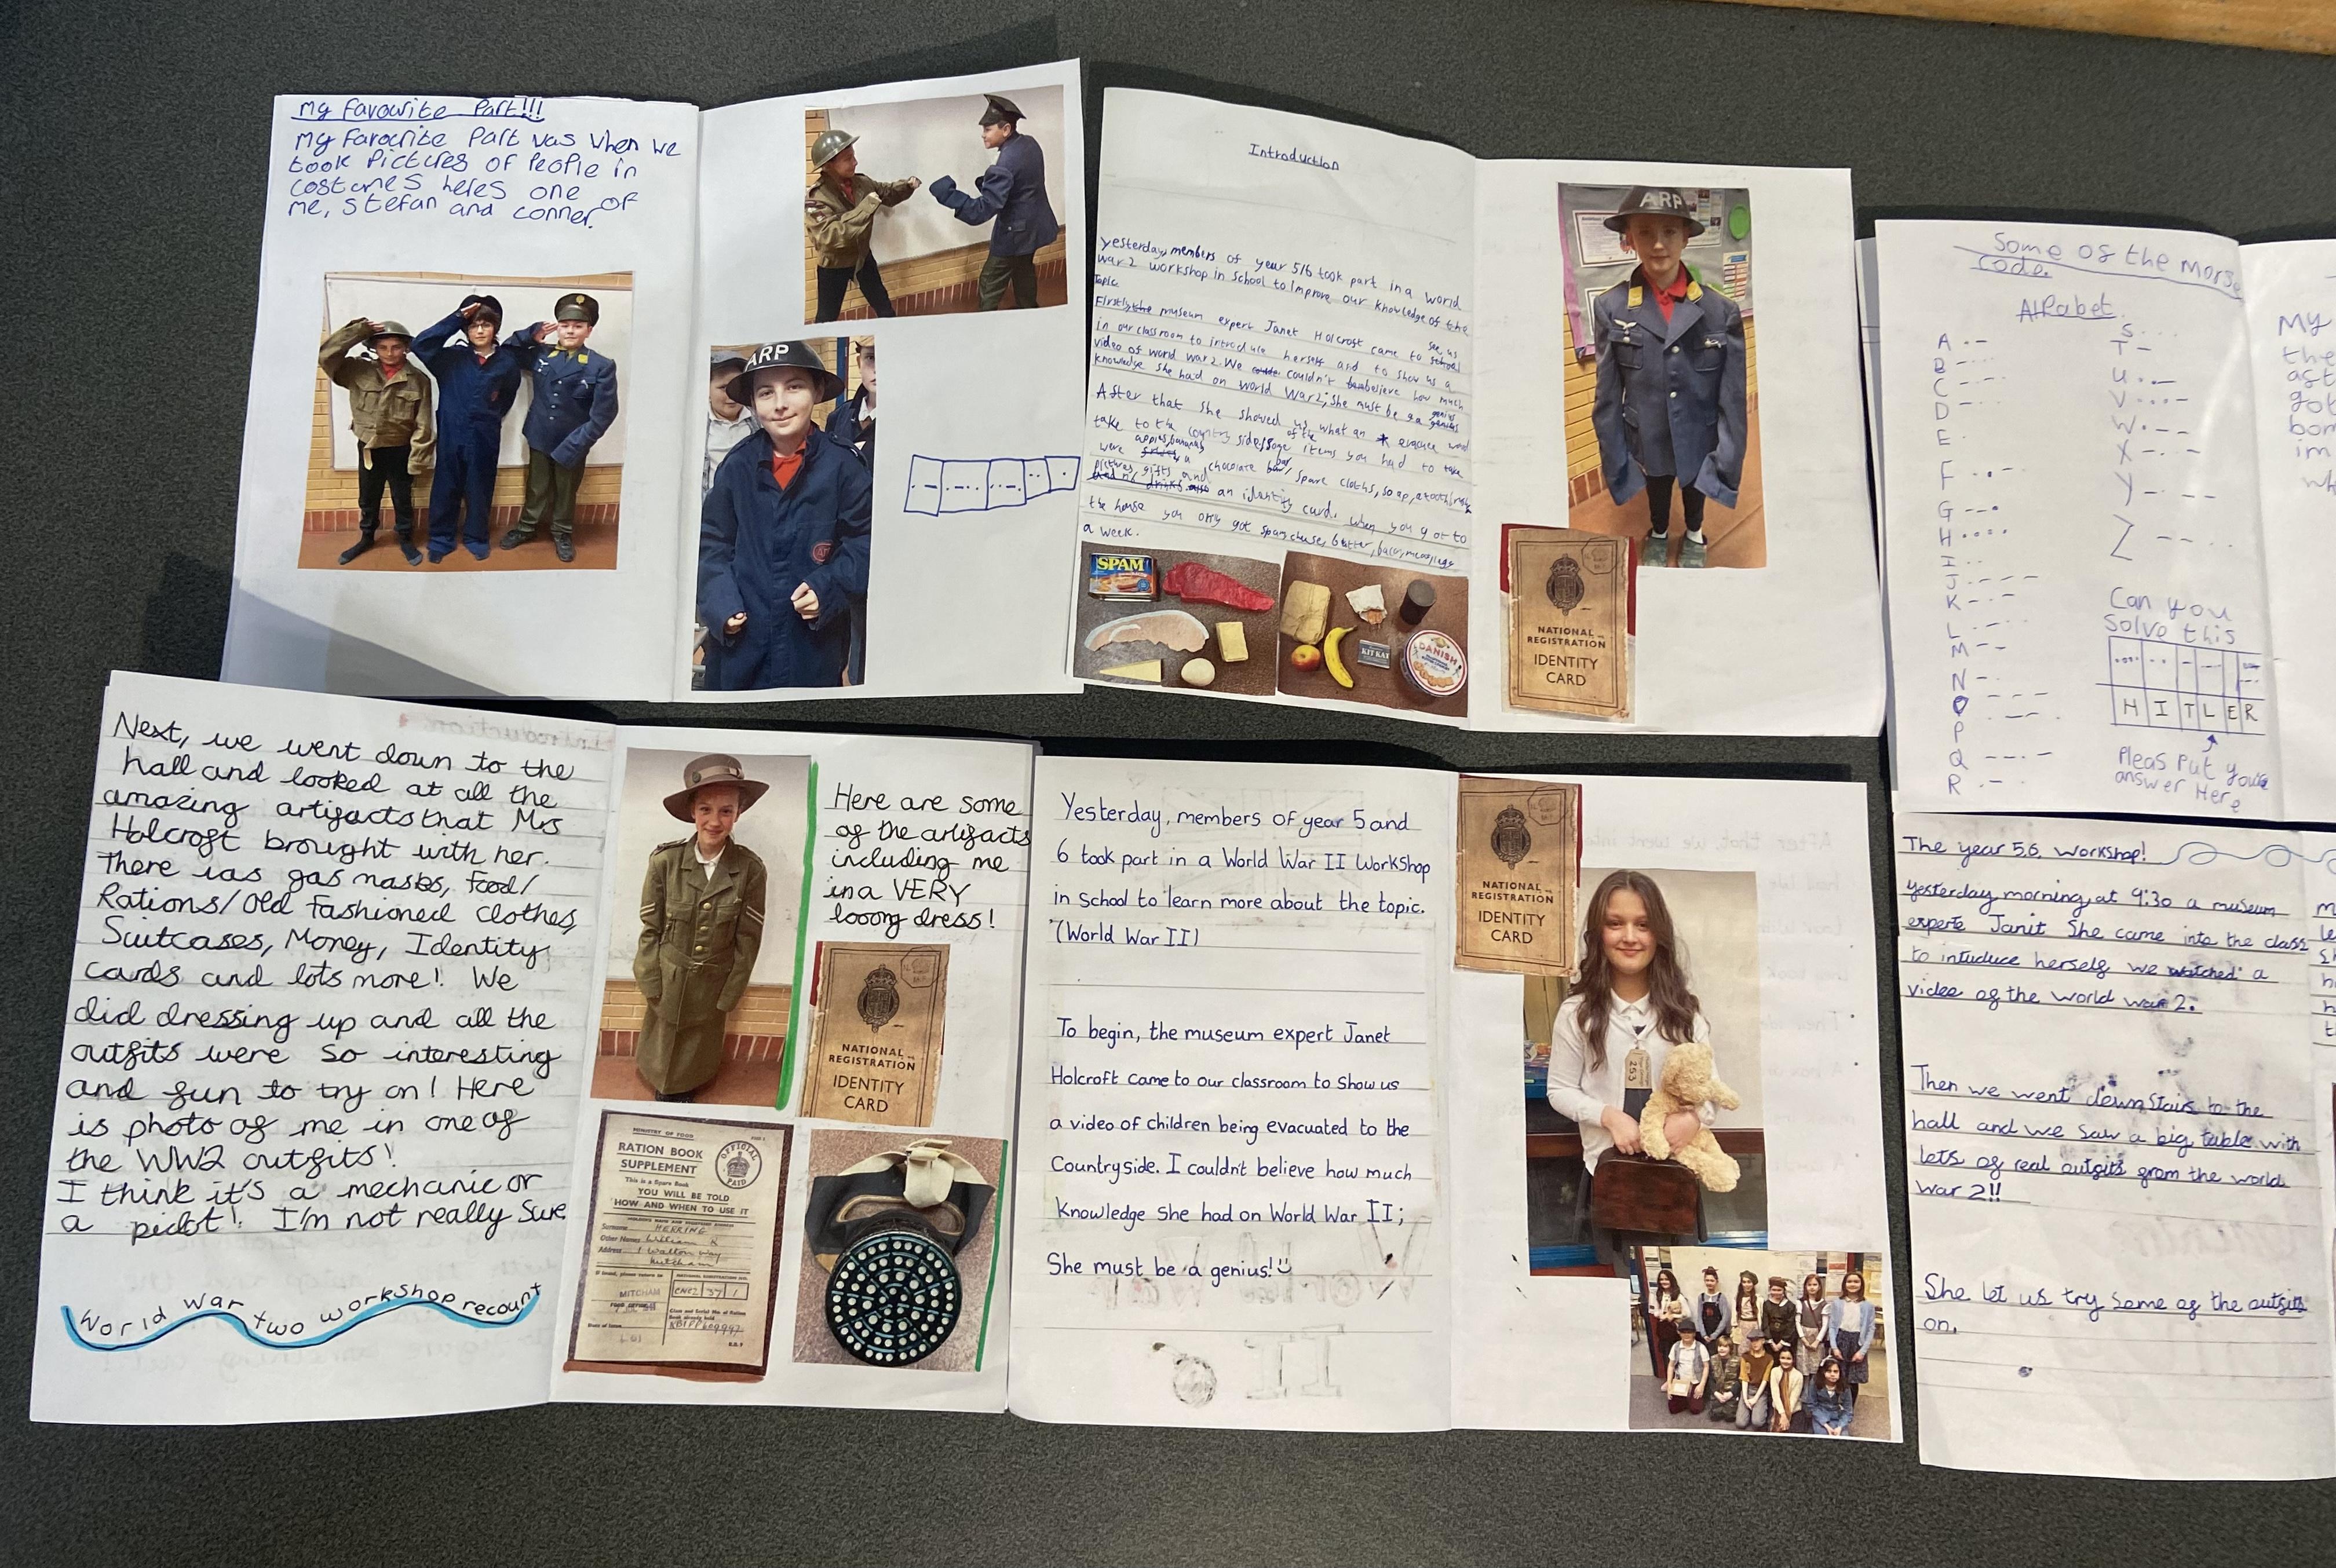 My favourite Part!!!
My Favorite Part was when we
took Pictures of People in
costumes heres one of
me, Stefan and conner.
ARP
Introduction
Yesterday, members of year 5/6 took part in a World
War 2 workshop in school to improve our knowledge of the
Topic.
Firstly, the museum expert Janet Holcroft came to see us
in our classroom to introduce herself and to show us a
video of World War 2. We couldn't believe how much
knowledge she had on World War 2; She must be a genius
After that she showed us what an evacuee would
take to the country side, some of the items you had to take
were apples, bananas, a chocolate bar, spare cloths, soap, a toothbrush,
pictures, gifts and an identity card. When you got to
the house you only got spam, cheese, butter,
a week.
SPAM
KIT KAT
DANISH
ARP
NATIONAL
REGISTRATION
IDENTITY
CARD
Some of the Morse
code.
Alfabet
A .-
B -...
C
D
E .
F ..-.
G --.
H ....
I ..
J .---
K -.-
L .-..
M --
N -.
O ---
P .--.
Q --.-
R .-.
S ...
T -
U ..-
V ...-
W .--
X -..-
Y -.--
Z --..
Can you
Solve this
H I T L E R
Pleas Put your
answer Here
My
the
got
im
Next, we went down to the
hall and looked at all the
amazing artifacts that Mrs
Holcroft brought with her.
There was gas masks, Food/
Rations/Old Fashioned clothes,
Suitcases, Money, Identity
cards and lots more! We
did dressing up and all the
outfits were so interesting
and fun to try on! Here
is photo of me in one of
the WW2 outfits!
I think it's a mechanic or
a pidot! I'm not really Sure.
World war two workshop recount
Here are some
of the artifacts
including me
in a VERY
looong dress!
NATIONAL
REGISTRATION
IDENTITY
CARD
MINISTRY OF FOOD
RATION BOOK
SUPPLEMENT
OFFICIAL
PAID
This is a Spare Book
YOU WILL BE TOLD
HOW AND WHEN TO USE IT
Surname HERRING
Other Names William
Address 1 Walton Way
Mitcham
MITCHAM
Date of Issue
Yesterday, members of year 5 and
6 took part in a World War II Workshop
in School to learn more about the topic.
(World War II)
To begin, the museum expert Janet
Holcroft came to our classroom to Show us
a video of children being evacuated to the
Countryside. I couldn't believe how much
Knowledge She had on World War II;
She must be a genius!
NATIONAL
REGISTRATION
IDENTITY
CARD
253
The year 5,6, workshop!
yesterday morning at 9:30 a museum
experte Janit She came into the class
to intuduce herself we watched a
video of the world war 2.
Then we went downstairs to the
hall and we saw a big table with
lots of real outfits from the world
war 2!!
She let us try some of the outfits
on.